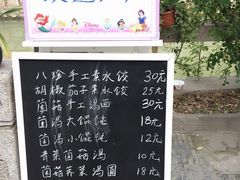 Disney
八珍手工素水饺 30元
胡椒茄子素水饺 25元
菌菇手工汤面 30元
菌汤大馄饨 18元
菌汤小馄饨 12元
青菜菌菇汤 10元
菌菇荠菜汤圆 18元